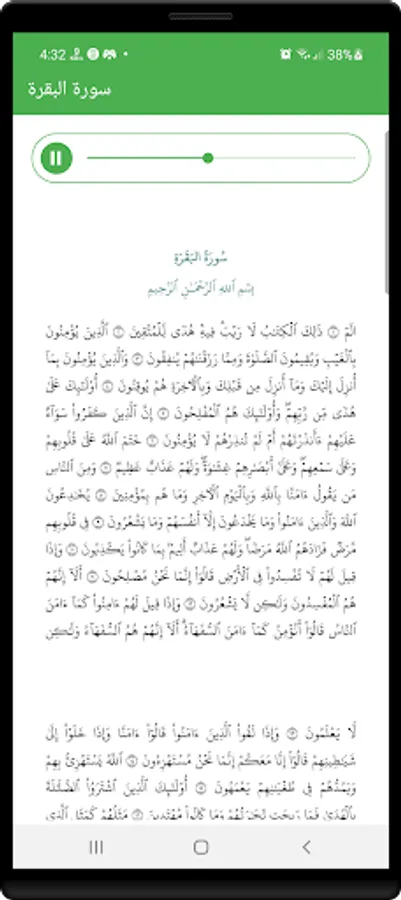 4:32
38%
سورة البقرة
سُورَةُ البَقَرَةِ
بِسْمِ ٱللَّهِ ٱلرَّحْمَٰنِ ٱلرَّحِيمِ
الٓمٓ ۝ ذَٰلِكَ ٱلْكِتَٰبُ لَا رَيْبَۛ فِيهِۛ هُدًى لِّلْمُتَّقِينَ ۝ ٱلَّذِينَ يُؤْمِنُونَ
بِٱلْغَيْبِ وَيُقِيمُونَ ٱلصَّلَوٰةَ وَمِمَّا رَزَقْنَٰهُمْ يُنفِقُونَ ۝ وَٱلَّذِينَ يُؤْمِنُونَ بِمَآ
أُنزِلَ إِلَيْكَ وَمَآ أُنزِلَ مِن قَبْلِكَ وَبِٱلْءَاخِرَةِ هُمْ يُوقِنُونَ ۝ أُو۟لَٰٓئِكَ عَلَىٰ
هُدًى مِّن رَّبِّهِمْ ۖ وَأُو۟لَٰٓئِكَ هُمُ ٱلْمُفْلِحُونَ ۝ إِنَّ ٱلَّذِينَ كَفَرُوا۟ سَوَآءٌ
عَلَيْهِمْ ءَأَنذَرْتَهُمْ أَمْ لَمْ تُنذِرْهُمْ لَا يُؤْمِنُونَ ۝ خَتَمَ ٱللَّهُ عَلَىٰ قُلُوبِهِمْ
وَعَلَىٰ سَمْعِهِمْ ۖ وَعَلَىٰٓ أَبْصَٰرِهِمْ غِشَٰوَةٌ ۖ وَلَهُمْ عَذَابٌ عَظِيمٌ ۝ وَمِنَ ٱلنَّاسِ
مَن يَقُولُ ءَامَنَّا بِٱللَّهِ وَبِٱلْيَوْمِ ٱلْءَاخِرِ وَمَا هُم بِمُؤْمِنِينَ ۝ يُخَٰدِعُونَ
ٱللَّهَ وَٱلَّذِينَ ءَامَنُوا۟ وَمَا يَخْدَعُونَ إِلَّآ أَنفُسَهُمْ وَمَا يَشْعُرُونَ ۝ فِى قُلُوبِهِم
مَّرَضٌ فَزَادَهُمُ ٱللَّهُ مَرَضًا ۖ وَلَهُمْ عَذَابٌ أَلِيمٌۢ بِمَا كَانُوا۟ يَكْذِبُونَ ۝ وَإِذَا
قِيلَ لَهُمْ لَا تُفْسِدُوا۟ فِى ٱلْأَرْضِ قَالُوٓا۟ إِنَّمَا نَحْنُ مُصْلِحُونَ ۝ أَلَآ إِنَّهُمْ
هُمُ ٱلْمُفْسِدُونَ وَلَٰكِن لَّا يَشْعُرُونَ ۝ وَإِذَا قِيلَ لَهُمْ ءَامِنُوا۟ كَمَآ ءَامَنَ
ٱلنَّاسُ قَالُوٓا۟ أَنُؤْمِنُ كَمَآ ءَامَنَ ٱلسُّفَهَآءُ ۗ أَلَآ إِنَّهُمْ هُمُ ٱلسُّفَهَآءُ وَلَٰكِن
لَّا يَعْلَمُونَ ۝ وَإِذَا لَقُوا۟ ٱلَّذِينَ ءَامَنُوا۟ قَالُوٓا۟ ءَامَنَّا وَإِذَا خَلَوْا۟ إِلَىٰ
شَيَٰطِينِهِمْ قَالُوٓا۟ إِنَّا مَعَكُمْ إِنَّمَا نَحْنُ مُسْتَهْزِءُونَ ۝ ٱللَّهُ يَسْتَهْزِئُ بِهِمْ
وَيَمُدُّهُمْ فِى طُغْيَٰنِهِمْ يَعْمَهُونَ ۝ أُو۟لَٰٓئِكَ ٱلَّذِينَ ٱشْتَرَوُا۟ ٱلضَّلَٰلَةَ
بِٱلْهُدَىٰ فَمَا رَبِحَت تِّجَٰرَتُهُمْ وَمَا كَانُوا۟ مُهْتَدِينَ ۝ مَثَلُهُمْ كَمَثَلِ ٱلَّذِى